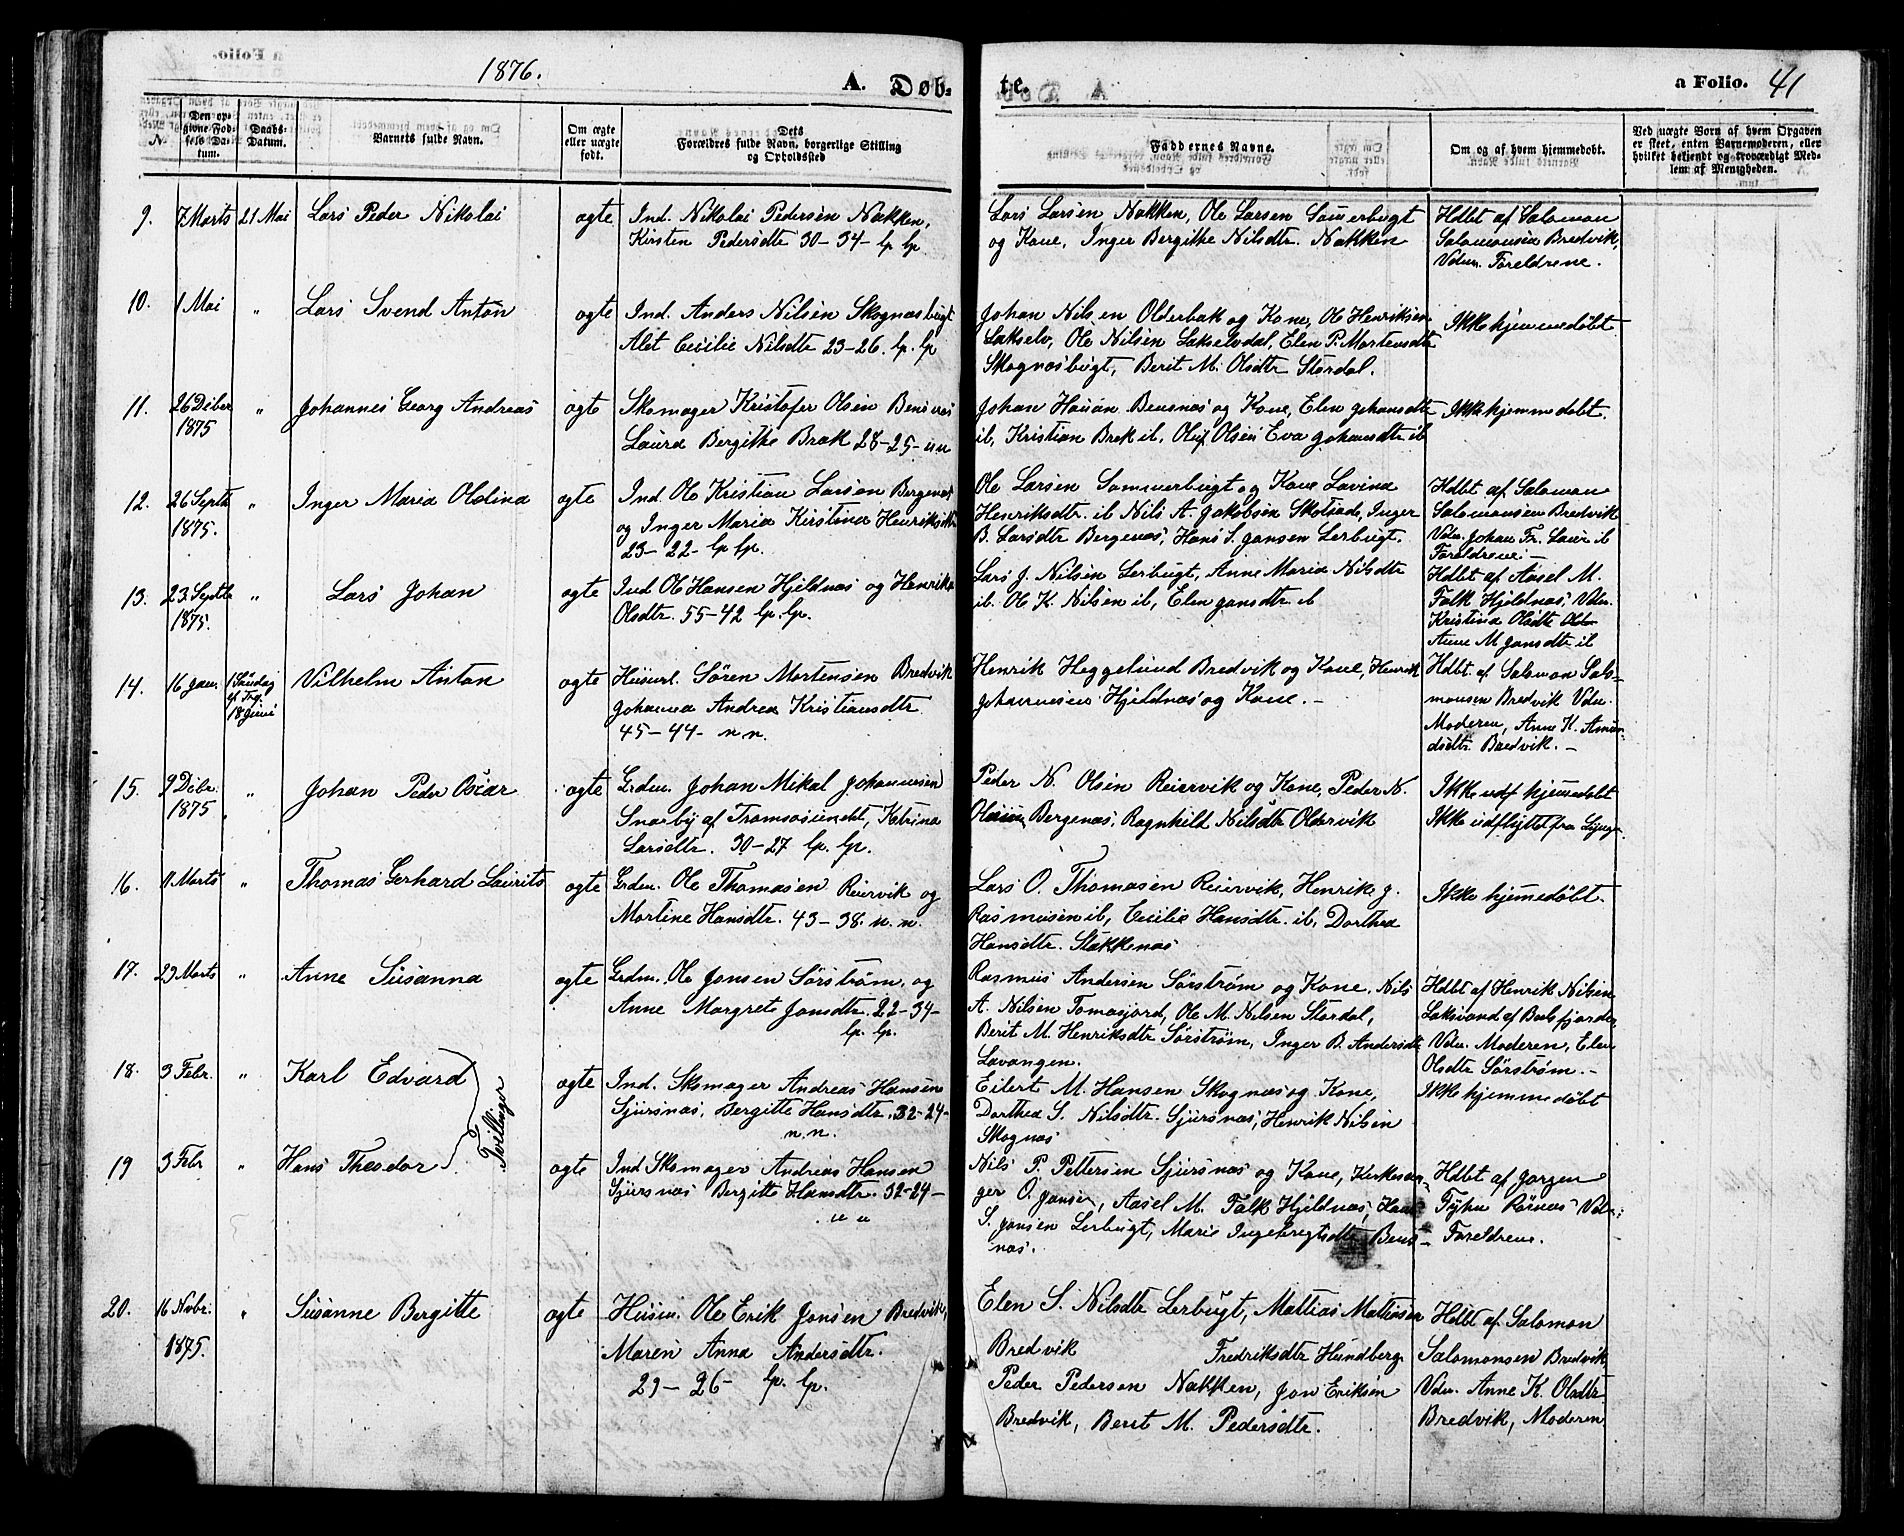 1876.
A. Døb=
te.
a Folio. 41
N.
Den op=
givne Fød=
sels Da=
tum.
Daabs=
Datum.
Barnets fulde Navn.
Om ægte
eller uægte
født.
Dets
Forældres fulde Navn, borgerlige Stilling
og Opholdssted
Faddernes Navne.
Om og af hvem hjemmedøbt.
Ved uægte Børn af hvem Opgaven
er skeet, enten Barnemoderen, eller
hvilket bekjendt og troværdigt Med=
lem af Menigheden.
9. 7 Marts 21 Mai Lars Peder Nikolai ægte
Ind. Nikolai Pedersen Nakken,
Kirsten Pedersdtr 30-34- lp lp.
Lars Larsen Nakken, Ole Larsen Sommerbugt
og Kone, Inger Bergithe Nilsdtr. Nakken
Hdbt af Salomon
Salomonsen Bredvik,
Vdn. Foreldrene.
10. 1 Mai " Lars Svend Anton ægte
Ind. Anders Nilsen Skognæsbugt
Alet Cecilie Nilsdtr 23-26. lp. lp
Johan Nilsen Olderbak og Kone, Ole Henriksen
Lakselv, Ole Nilsen Lakselvdal, Elen P. Mortensdtr
Skognæsbugt, Berit M. Olsdtr Stordal.
Ikke hjemmedøbt
11. 26 Dcber
1875 " Johannes Georg Andreas ægte
Skomager Kristofer Olsen Bensnes
Laura Bergithe Bræk 28-25- n n
Johan Hansen Bensnæs og Kone, Elen Johansdtr
ib, Kristian Bræk ib, Oluf Olsen Eva Johansdtr ib
Ikke hjemmedøbt.
12. 26 Septb
1875. " Inger Maria Oleline ægte
Ind. Ole Kristian Larsen Bergenæs
og Inger Maria Kirstina Henriksdtr
23-22- lp lp.
Ole Larsen Sommerbugt og Kone Lavina
Henriksdtr. ib Nils A. Jakobsen, Inger
B. Larsdtr Bergenæs, Hans S. Jansen Lerbugt.
Hdbt af Salomon
Salomonsen Bredvik
Vdn. Johan Fr. ib
Foreldrene. -
13. 23. Septb
1875. " Lars Johan ægte
Ind Ole Hansen Hjeldnæs og Henrika
Olsdtr. 55-42 lp. lp.
Lars J. Nilsen Lerbugt, Anne Maria Nilsdtr
ib. Ole K. Nilsen ib, Elen Jansdtr ib
Hdbt af Aasel M.
Falk Hjeldnæs, Vdn.
Kristina Olsdtr
Anne M Jansdtr ib
14. 16 Jan. 1 Søndag
ef. Tref.
18 Juni Vilhelm Anton ægte
Husm. Søren Mortensen Bredvik
Johanna Andrea Kristiansdtr
45-44- n n.
Henrik Heggelund Bredvik og Kone, Henrik
Johannesen Hjeldnæs og Kone. -
Hdbt. af Salomon Salo=
monsen Bredvik Vdn.
Moderen, Anne K. Amun=
dsdtr Bredvik. -
15. 9 Dcbr.
1875 " Johan Peder Oscar ægte
Grdm. Johan Mikal Johannesen
Snarby af Tromsøsundet, Katrina
Larsdtr. 30-27 lp. lp.
Peder N. Olsen Reiervik og Kone, Peder N.
Olsen Bergenæs, Ragnhild Nilsdtr Oldervik
Ikke udf hjemmedøbt
Ikke udflyttet fra Lyngen
16. 11 Marts " Thomas Gerhard Laurits ægte
Grdm. Ole Thomasen Reiervik og
Martine Hansdtr. 43-38. n. n.
Lars O. Thomasen Reiervik, Henrik J.
Rasmusen ib, Cecilie Hansdtr. ib, Dorthea
Hansdtr. Stakkenæs
Ikke hjemmedøbt.
17. 23 Marts " Anne Susanna ægte
Grdm. Ole Jonsen Sørstrøm og
Anne Margret Jonsdtr. 22-34-
lp. lp.
Rasmus Andersen Sørstrøm og Kone, Nils
A. Nilsen Tomasjord, Ole M. Nilsen Stordal,
Berit M. Henriksdtr Sørstrøm, Inger B. Andersdtr
Lavangen.
Hdbt af Henrik Nilsen
Laksvand af Balsfjorden,
Vdn. Moderen, Elen
Olsdtr Sørstrøm. -
18. 3 Febr. " Karl Edvard ægte
Tvillinger
Ind. Skomager Andreas Hansen
Sjursnæs, Bergitte Hansdtr. 32-24-
n. n.
Eilert M. Hansen Skognæs og Kone,
Dorthea S. Nilsdtr. Sjursnæs, Henrik Nilsen
Skognæs
Ikke hjemmedøbt
19 3 Febr " Hans Theodor ægte
Ind Skomager Andreas Hansen
Sjursnæs Bergitte Hansdtr. 32-24-
n n
Nils P. Pettersen Sjursnæs og Kone, Kirkesan=
ger O. Jansen, Aasel M. Falk Hjeldnæs, Hans
S. Jansen Lerbugt, Marie Ingebrigtsdtr Bens-
næs.
Hdbt af Jørgen
Fyhn Rørnæs Vdn:
Foreldrene.
20. 16 Nvbr.
1875. " Susanne Bergitte ægte
Husm. Ole Erik Jonsen Bredvik,
Maren Anna Andersdtr.
29-26- lp. lp.
Elen S. Nilsdtr Lerbugt, Mattias Mathisen
Bredvik Fredriksdtr Hundberg
Peder Pedersen Nakken, Jon Eriksen
Bredvik, Berit M. Pedersdtr.
Hdbt af Salomon
Salomonsen Bredvik
Vdn. Anne K. Olsdtr
Bredvik, Moderen